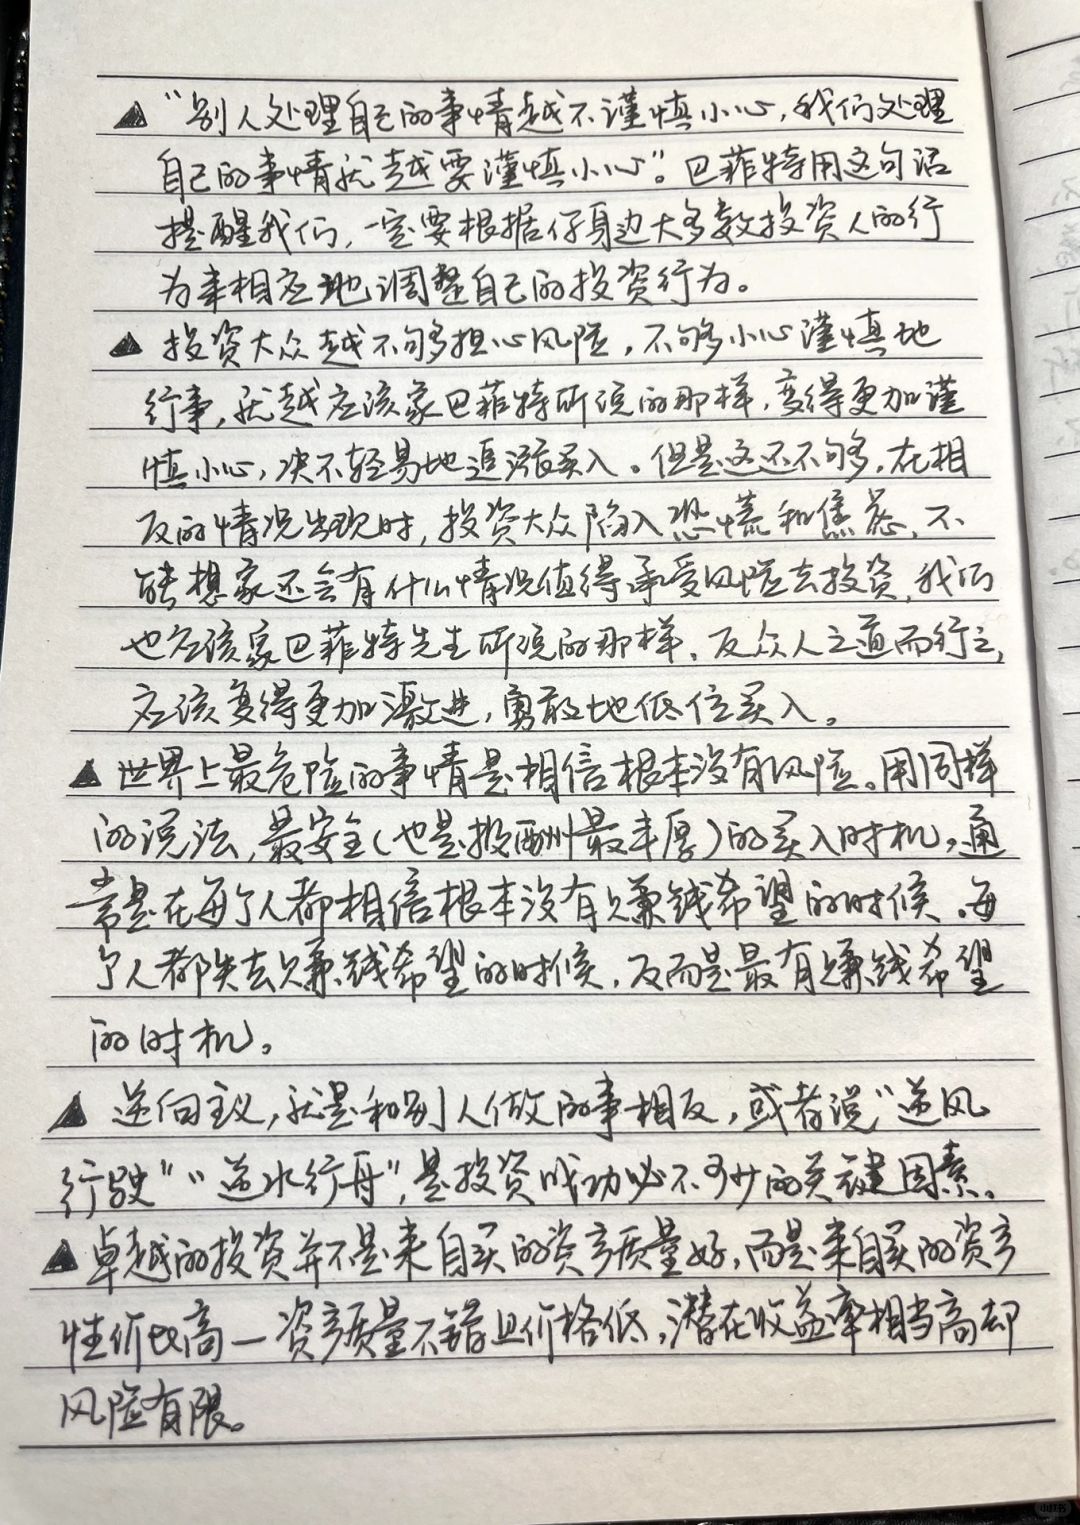 ▲“别人处理自己的事情越不谨慎小心，我们处理
自己的事情就越要谨慎小心”。巴菲特用这句话
提醒我们，一定要根据你身边大多数投资人的行
为来相应地调整自己的投资行为。
▲投资大众越不够担心风险，不够小心谨慎地
行事，就越应该象巴菲特所说的那样，变得更加谨
慎小心，决不轻易地追涨买入。但是这还不够，在相
反的情况出现时，投资大众陷入恐慌和焦虑，不
能想象还会有什么情况值得承受风险去投资，我们
也应该象巴菲特先生所说的那样，反众人之道而行之，
应该变得更加激进，勇敢地低位买入。
▲世界上最危险的事情是相信根本没有风险。用同样
的说法，最安全（也是报酬最丰厚）的买入时机，通
常是在每个人都相信根本没有赚钱希望的时候。每
个人都失去赚钱希望的时候，反而是最有赚钱希望
的时机。
▲逆向主义，就是和别人做的事相反，或者说“逆风
行驶”“逆水行舟”，是投资成功必不可少的关键因素。
▲卓越的投资并不是来自买的资产质量好，而是来自买的资产
性价比高—资产质量不错且价格低，潜在收益率相当高却
风险有限。
小红书